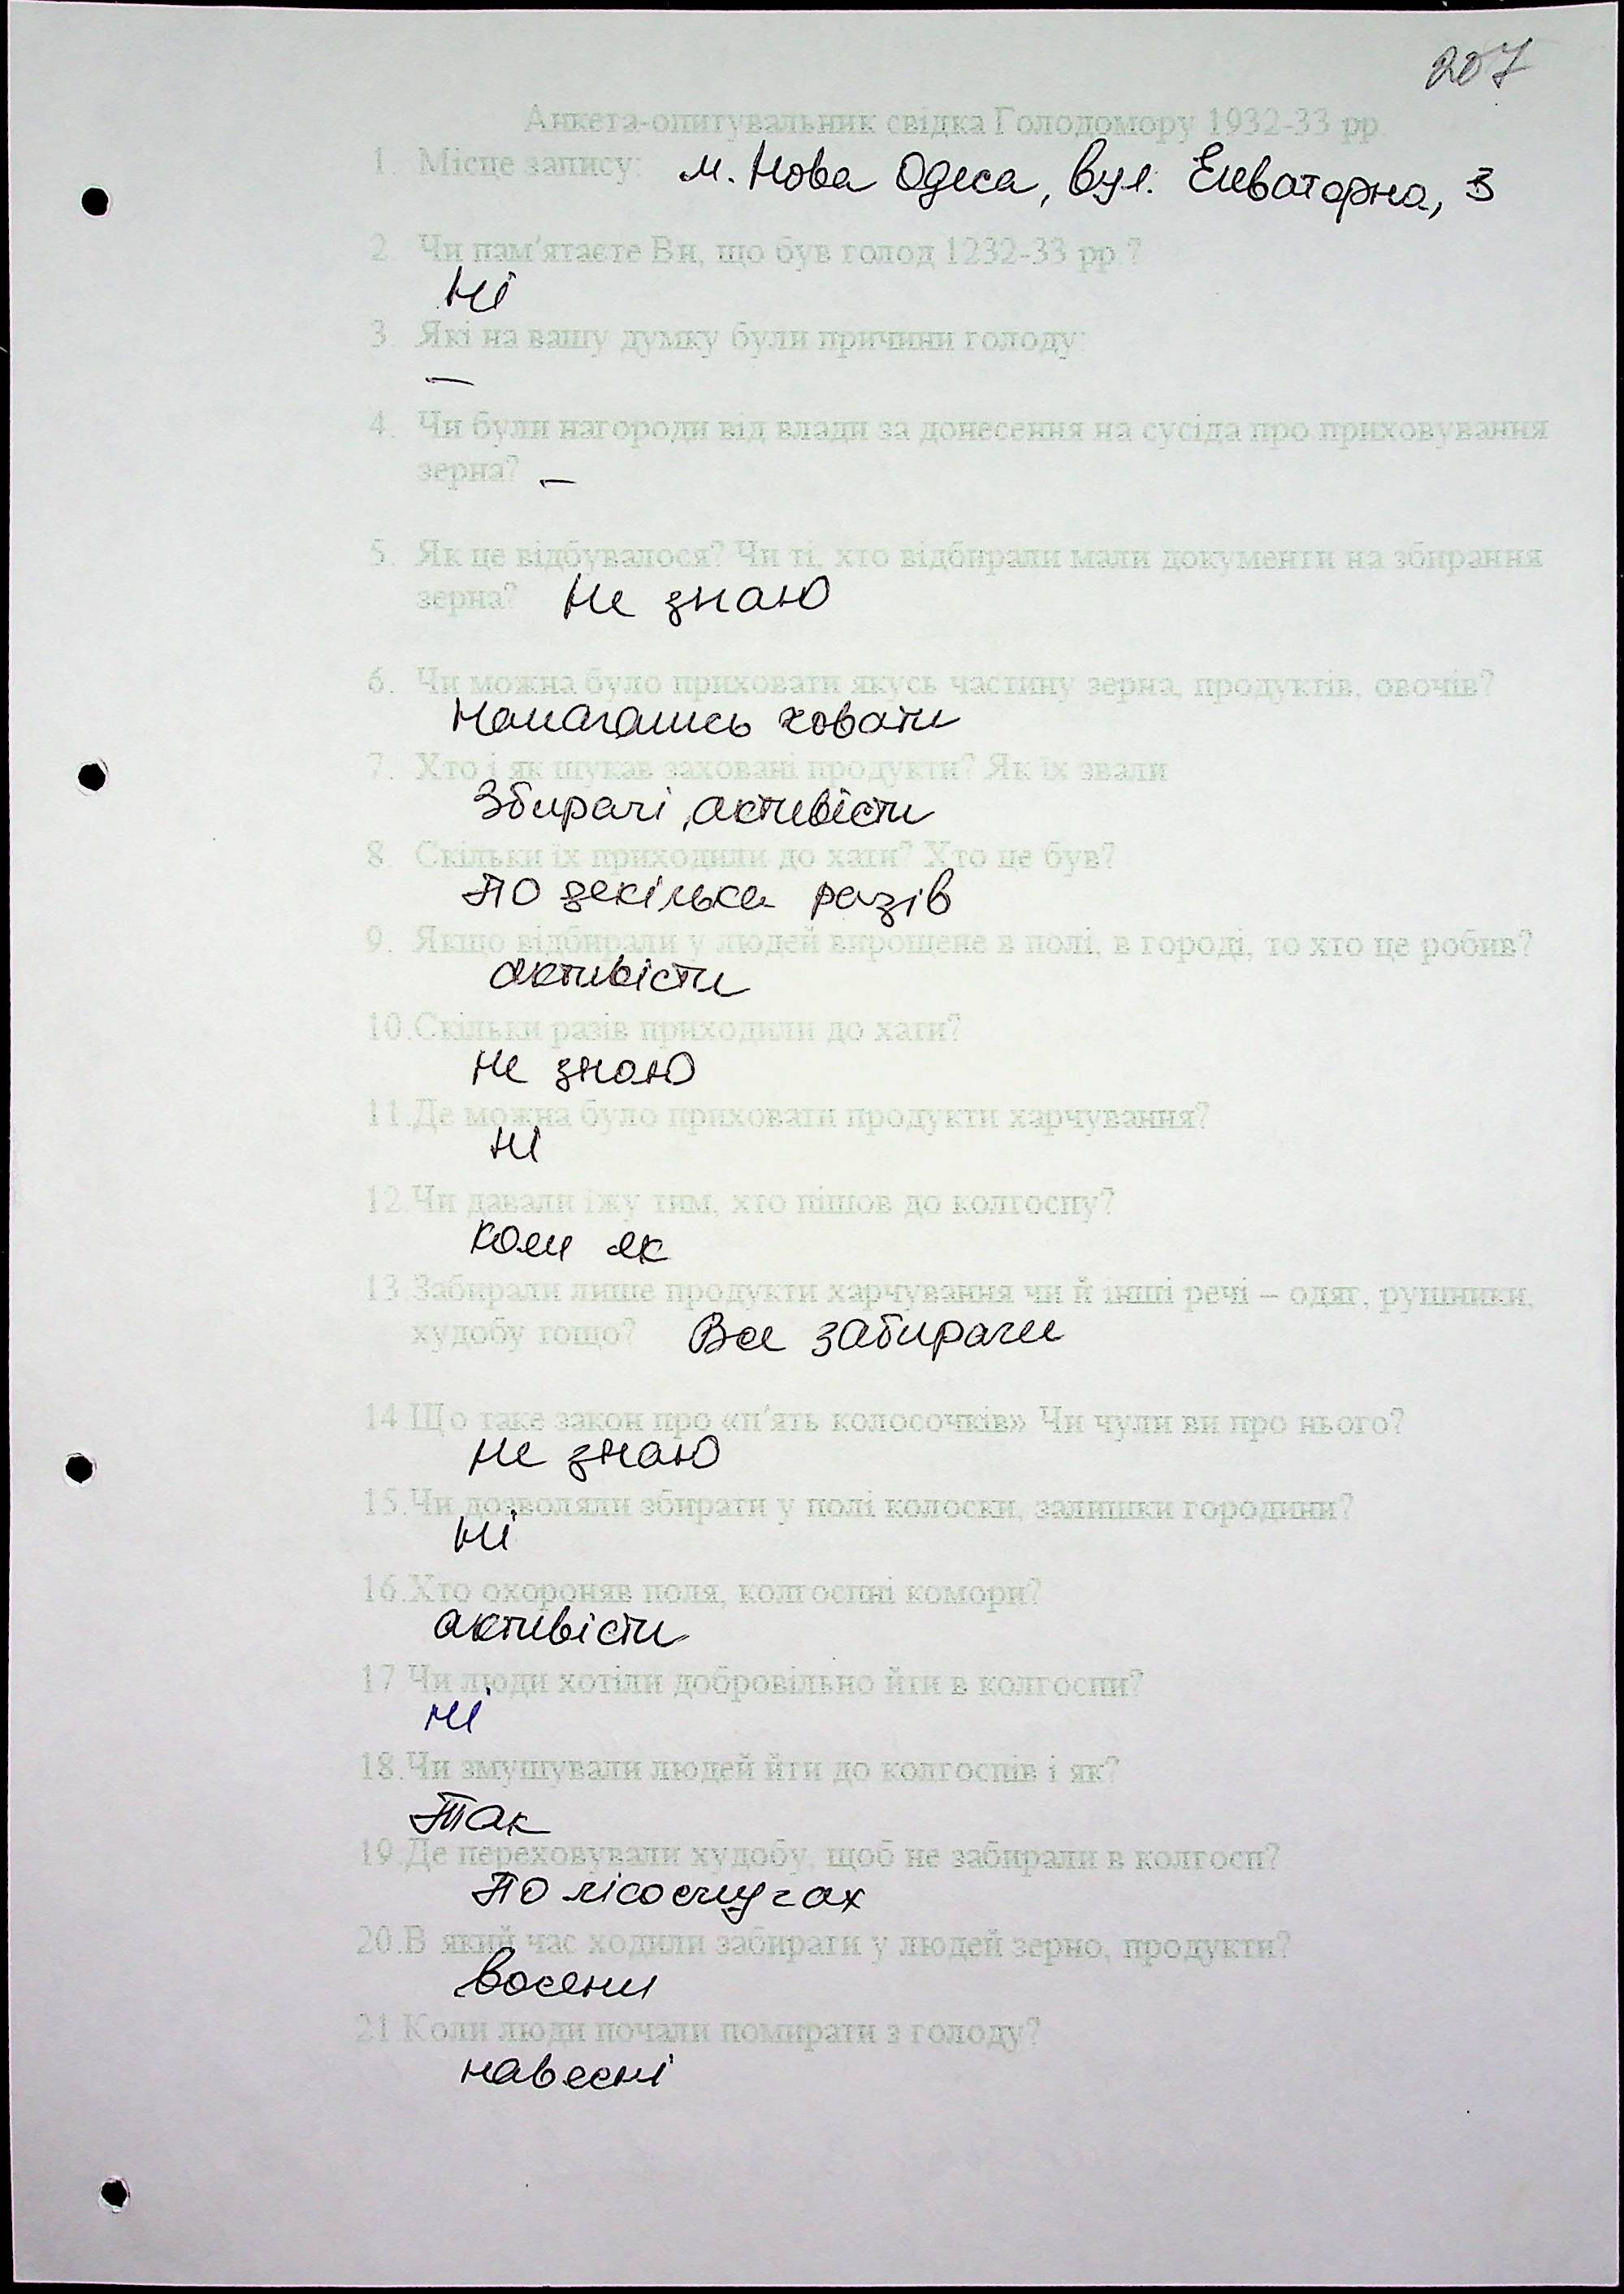 207
Анкета-опитувальник свідка Голодомору 1932-33 рр.
1. Місце запису: м. Нова Одеса, вул. Елеваторна, 3
2. Чи пам'ятаєте Ви, що був голод 1232-33 рр.?
Ні
3. Які на вашу думку були причини голоду:
—
4. Чи були нагороди від влади за донесення на сусіда про приховування
зерна? —
5. Як це відбувалося? Чи ті, хто відбирали мали документи на збирання
зерна? Не знаю
6. Чи можна було приховати якусь частину зерна, продуктів, овочів?
Намагались ховати
7. Хто і як шукав заховані продукти? Як їх звали
Збирачі, активісти
8. Скільки їх приходили до хати? Хто це був?
По декілька разів
9. Якщо відбирали у людей вирощене в полі, в городі, то хто це робив?
активісти
10. Скільки разів приходили до хати?
Не знаю
11. Де можна було приховати продукти харчування?
Ні
12. Чи давали їжу тим, хто пішов до колгоспу?
Коли як
13. Забирали лише продукти харчування чи й інші речі – одяг, рушники,
худобу тощо? Все забирали
14. Що таке закон про «п'ять колосочків» Чи чули ви про нього?
Не знаю
15. Чи дозволяли збирати у полі колоски, залишки городини?
Ні
16. Хто охороняв поля, колгоспні комори?
активісти
17. Чи люди хотіли добровільно йти в колгоспи?
Ні
18. Чи змушували людей йти до колгоспів і як?
Так
19. Де переховували худобу, щоб не забирали в колгосп?
По лісосмугах
20. В який час ходили забирати у людей зерно, продукти?
восени
21. Коли люди почали помирати з голоду?
навесні